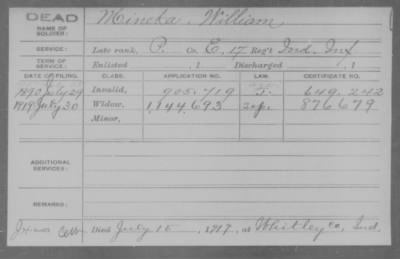 DEAD
NAME OF SOLDIER: Mincka, William
SERVICE: Late rank, P. Co. E, 17 Reg't Ind. Inf
TERM OF SERVICE: Enlisted , 1 Discharged , 1
DATE OF FILING. CLASS. APPLICATION NO. LAW. CERTIFICATE NO.
1890 July 29 Invalid, 905.719 649.242
1919 July 30 Widow, 1,144.693 876679
Minor,
ADDITIONAL SERVICES:
REMARKS:
Died July 15, 1919, at Whitley Co, Ind.